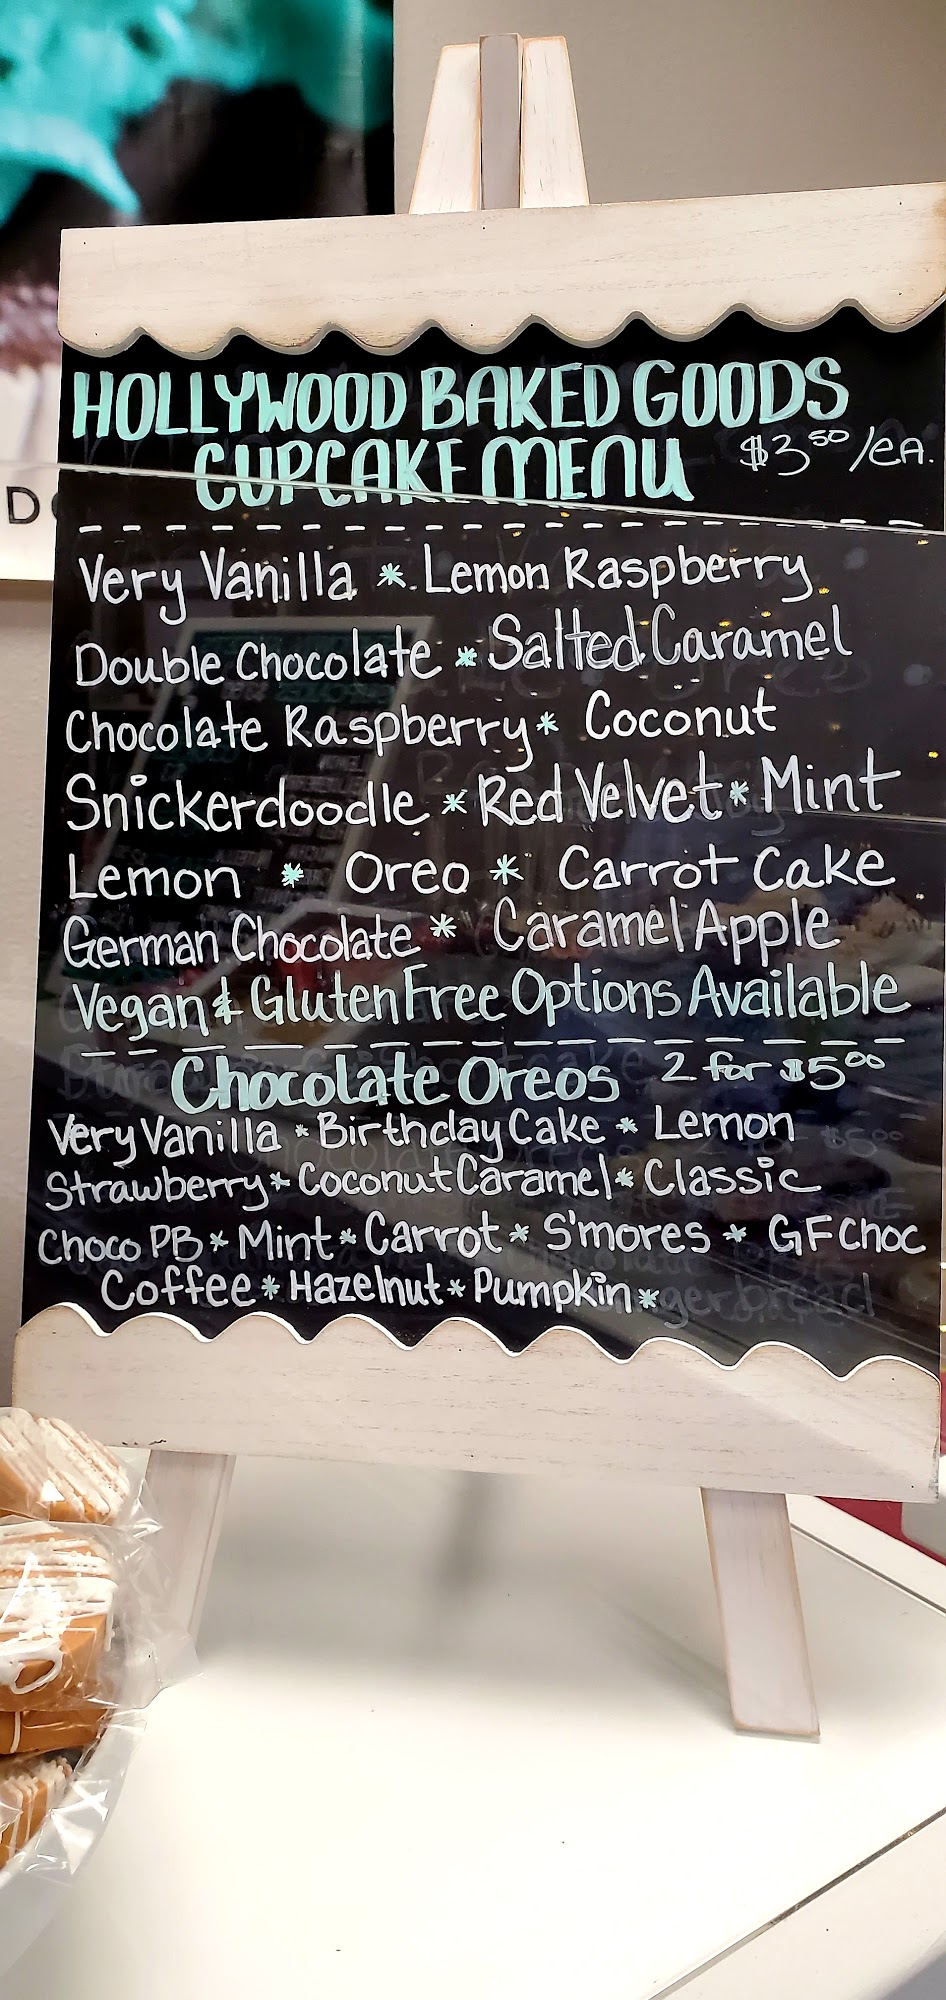 HOLLYWOOD BAKED GOODS
CUPCAKE MENU $3.50/EA.
Very Vanilla * Lemon Raspberry
Double Chocolate * Salted Caramel
Chocolate Raspberry * Coconut
Snickerdoodle * Red Velvet * Mint
Lemon * Oreo * Carrot Cake
German Chocolate * Caramel Apple
Vegan & Gluten Free Options Available
Chocolate Oreos 2 for $5.00
Very Vanilla * Birthday Cake * Lemon
Strawberry * Coconut Caramel * Classic
Choco PB * Mint * Carrot * S'mores * GF Choc
Coffee * Hazelnut * Pumpkin *